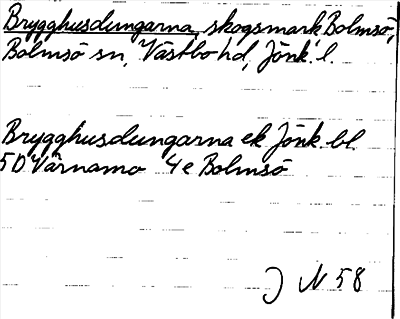 Brygghusdungarna, skogsmark, Bolmsö,
Bolmsö sn, Västbo hd, Jönk. l.
Brygghusdungarna ek Jönk. bl.
5D Värnamo 4e Bolmsö
J N 58